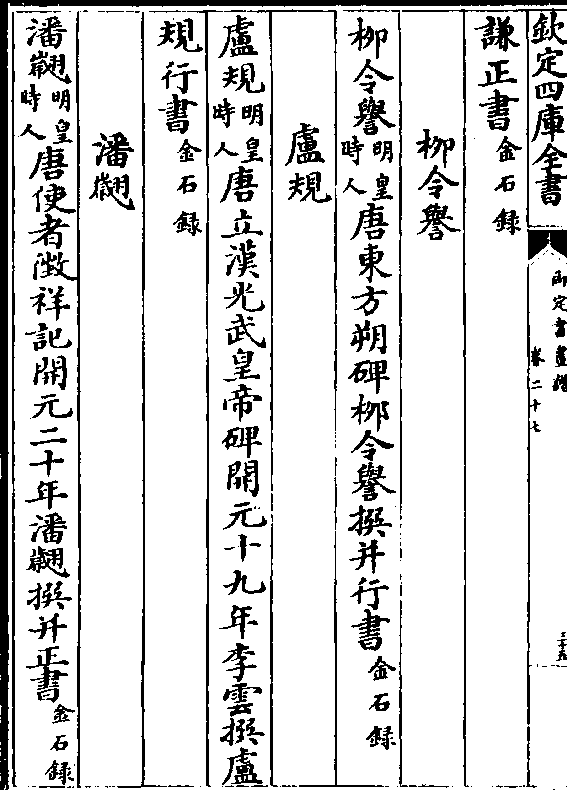 欽定四庫全書
御定書畫譜
卷二十七
謙正書金石録
柳令譽
柳令譽明皇時人唐東方朔碑柳令譽撰并行書金石録
盧規
盧規明皇時人唐立漢光武皇帝碑開元十九年李雲撰盧
規行書金石録
潘翽
潘翽明皇時人唐使者徵祥記開元二十年潘翽撰并正書金石録